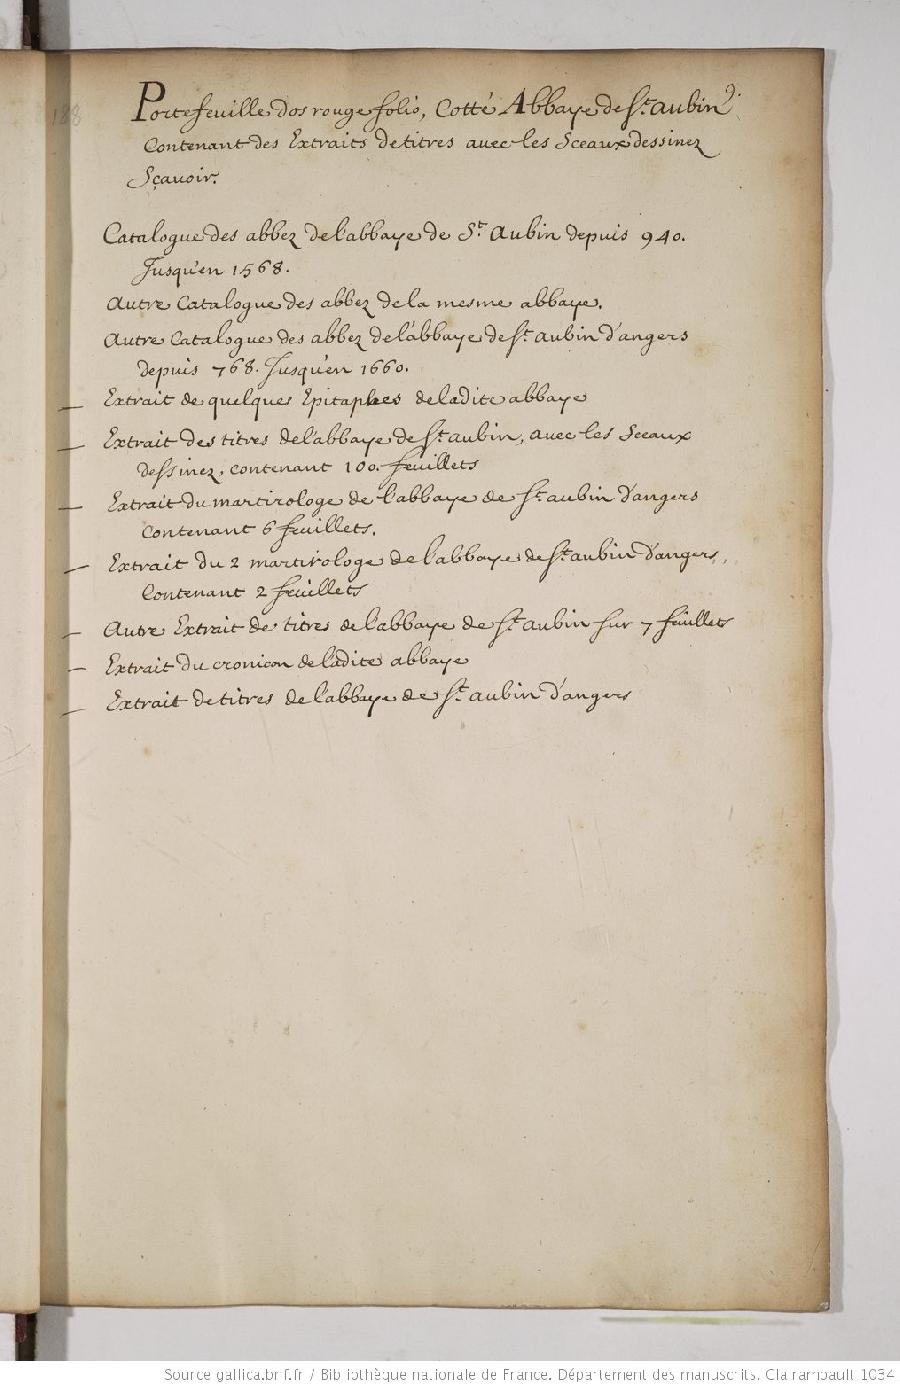 188
Portefeuille dos rouge folio, Cotté Abbaye de St. aubin
Contenant des Extraits de titres avec les Sceaux dessinez
Sçavoir.
Catalogue des abbez de l'abbaye de St. Aubin depuis 940.
Jusqu'en 1568.
Autre Catalogue des abbez de la mesme abbaye.
Autre Catalogue des abbez de l'abbaye de St. aubin d'angers
depuis 768. Jusqu'en 1660.
— Extrait de quelques Epitaphes de ladite abbaye
— Extrait des titres de l'abbaye de St. aubin, avec les Sceaux
dessinez, contenant 100. feuillets
— Extrait du martirologe de l'abbaye de St. aubin d'angers
Contenant 6 feuillets.
— Extrait du 2 martirologe de l'abbaye de St. aubin d'angers,
Contenant 2 feuillets
— Autre Extrait de titres de l'abbaye de St. aubin sur 7 feuillets
— Extrait du cronicon de ladite abbaye
— Extrait de titres de l'abbaye de St. aubin d'angers
Source gallica.bnf.fr / Bibliothèque nationale de France. Département des manuscrits. Clairambault 1034